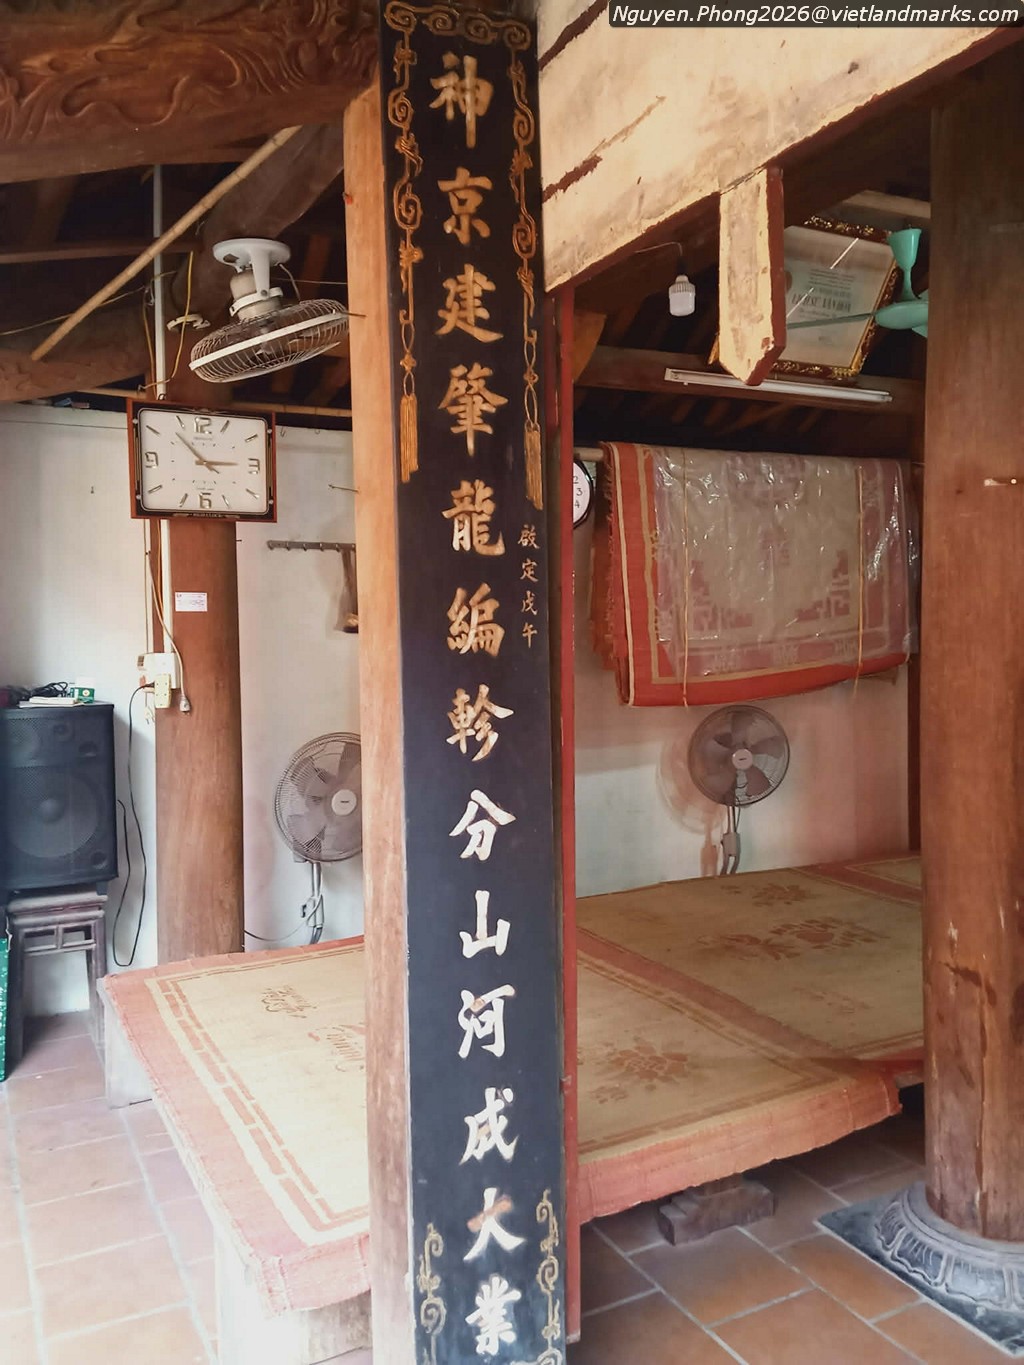 Nguyen.Phong2026@vietlandmarks.com
神京建肇龍編軫分山河成大業
啟定戊午
12
3
6
9
2
3
4